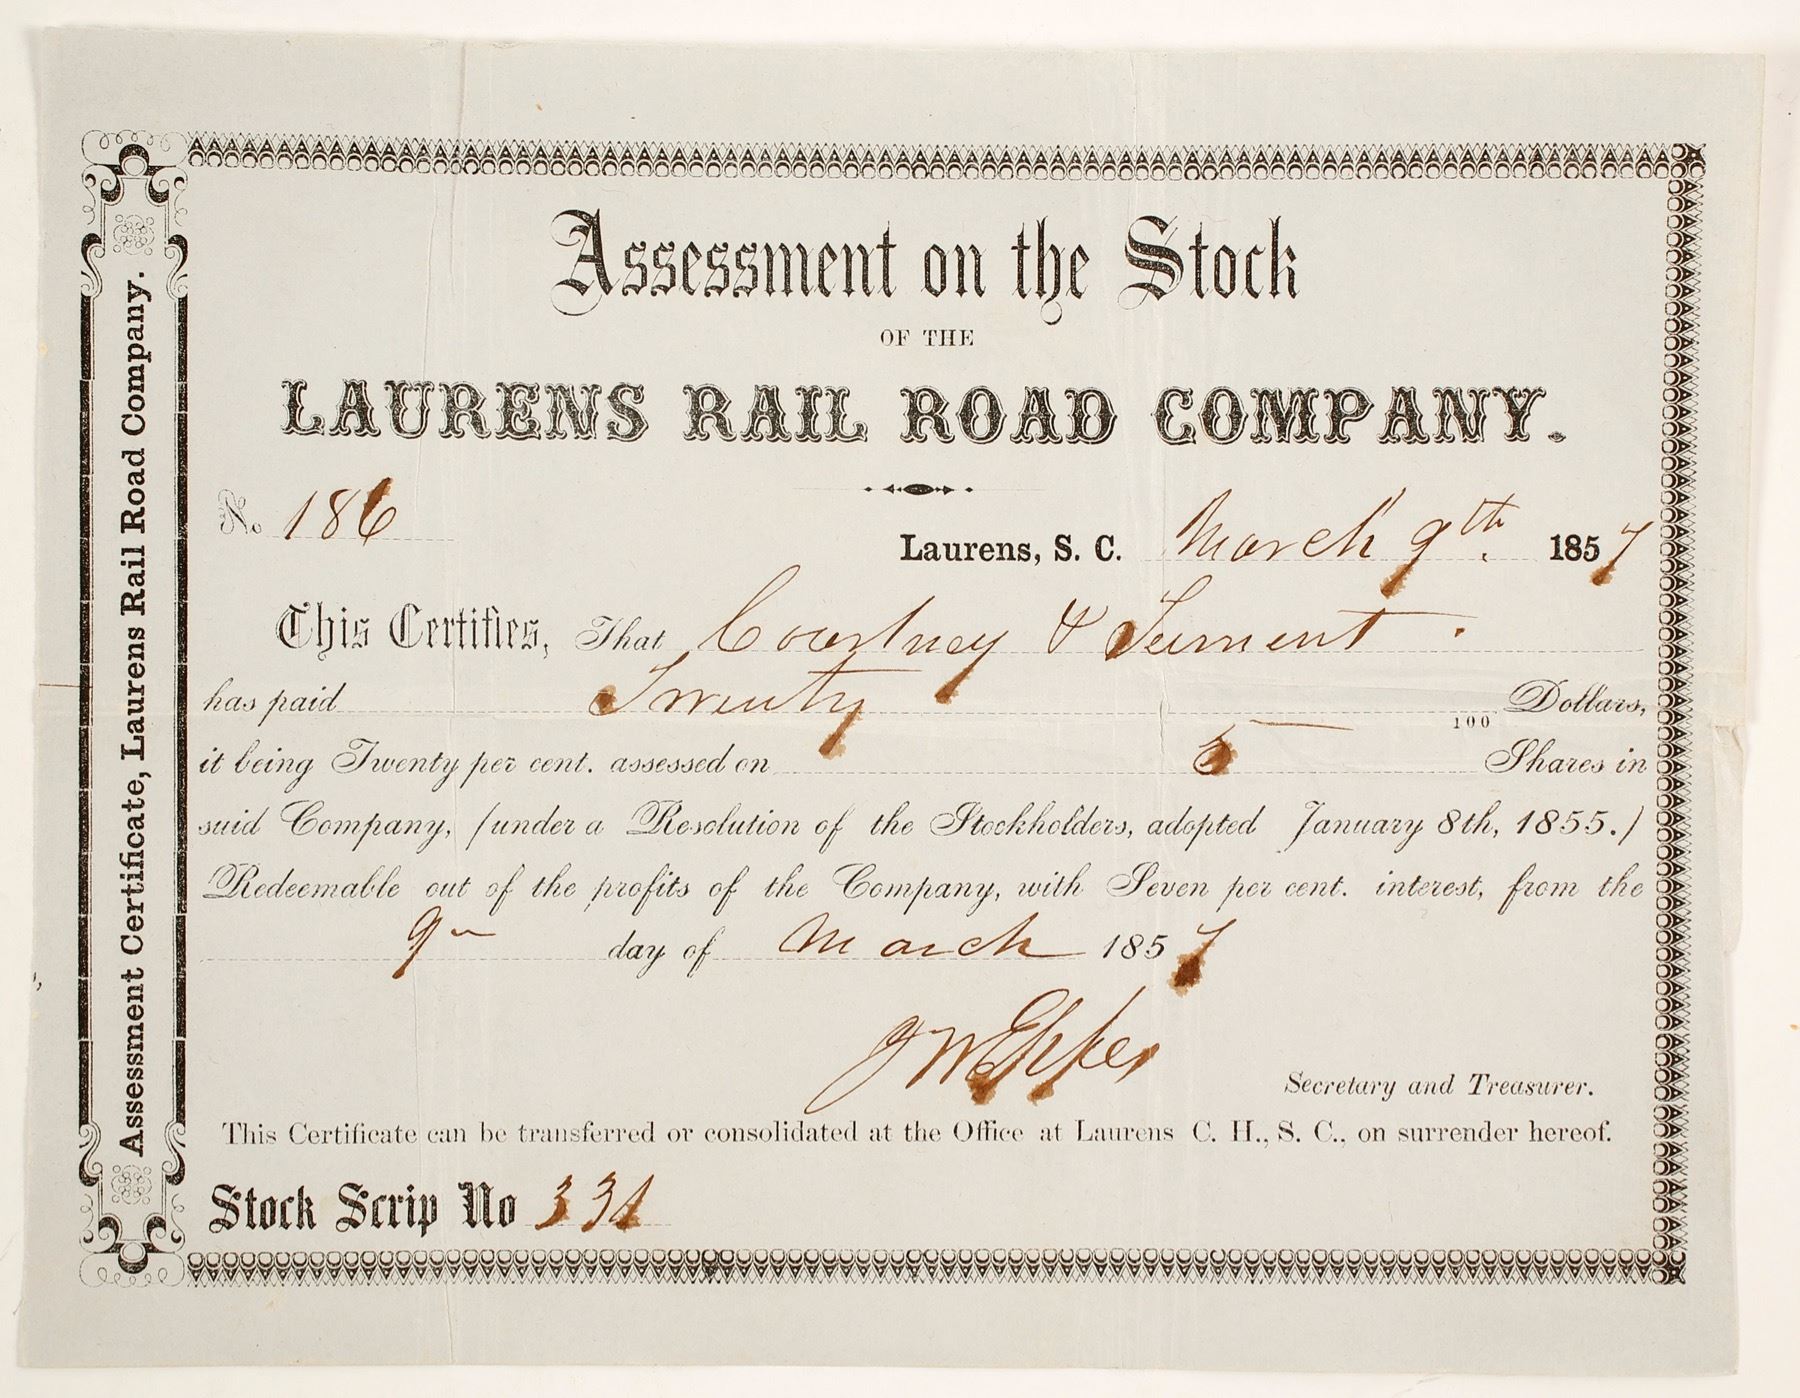 Assessment on the Stock
OF THE
LAURENS RAIL ROAD COMPANY.
No. 186
Laurens, S. C. March 9th. 1857
This Certifies, That Courtney & Tennent.
has paid Twenty 100 Dollars,
it being Twenty per cent. assessed on 5 Shares in
said Company, (under a Resolution of the Stockholders, adopted January 8th, 1855.)
Redeemable out of the profits of the Company, with Seven per cent. interest, from the
9 day of March 1857
J W Eppes
Secretary and Treasurer.
This Certificate can be transferred or consolidated at the Office at Laurens C. H., S. C., on surrender hereof.
Stock Scrip No 331
Assessment Certificate, Laurens Rail Road Company.